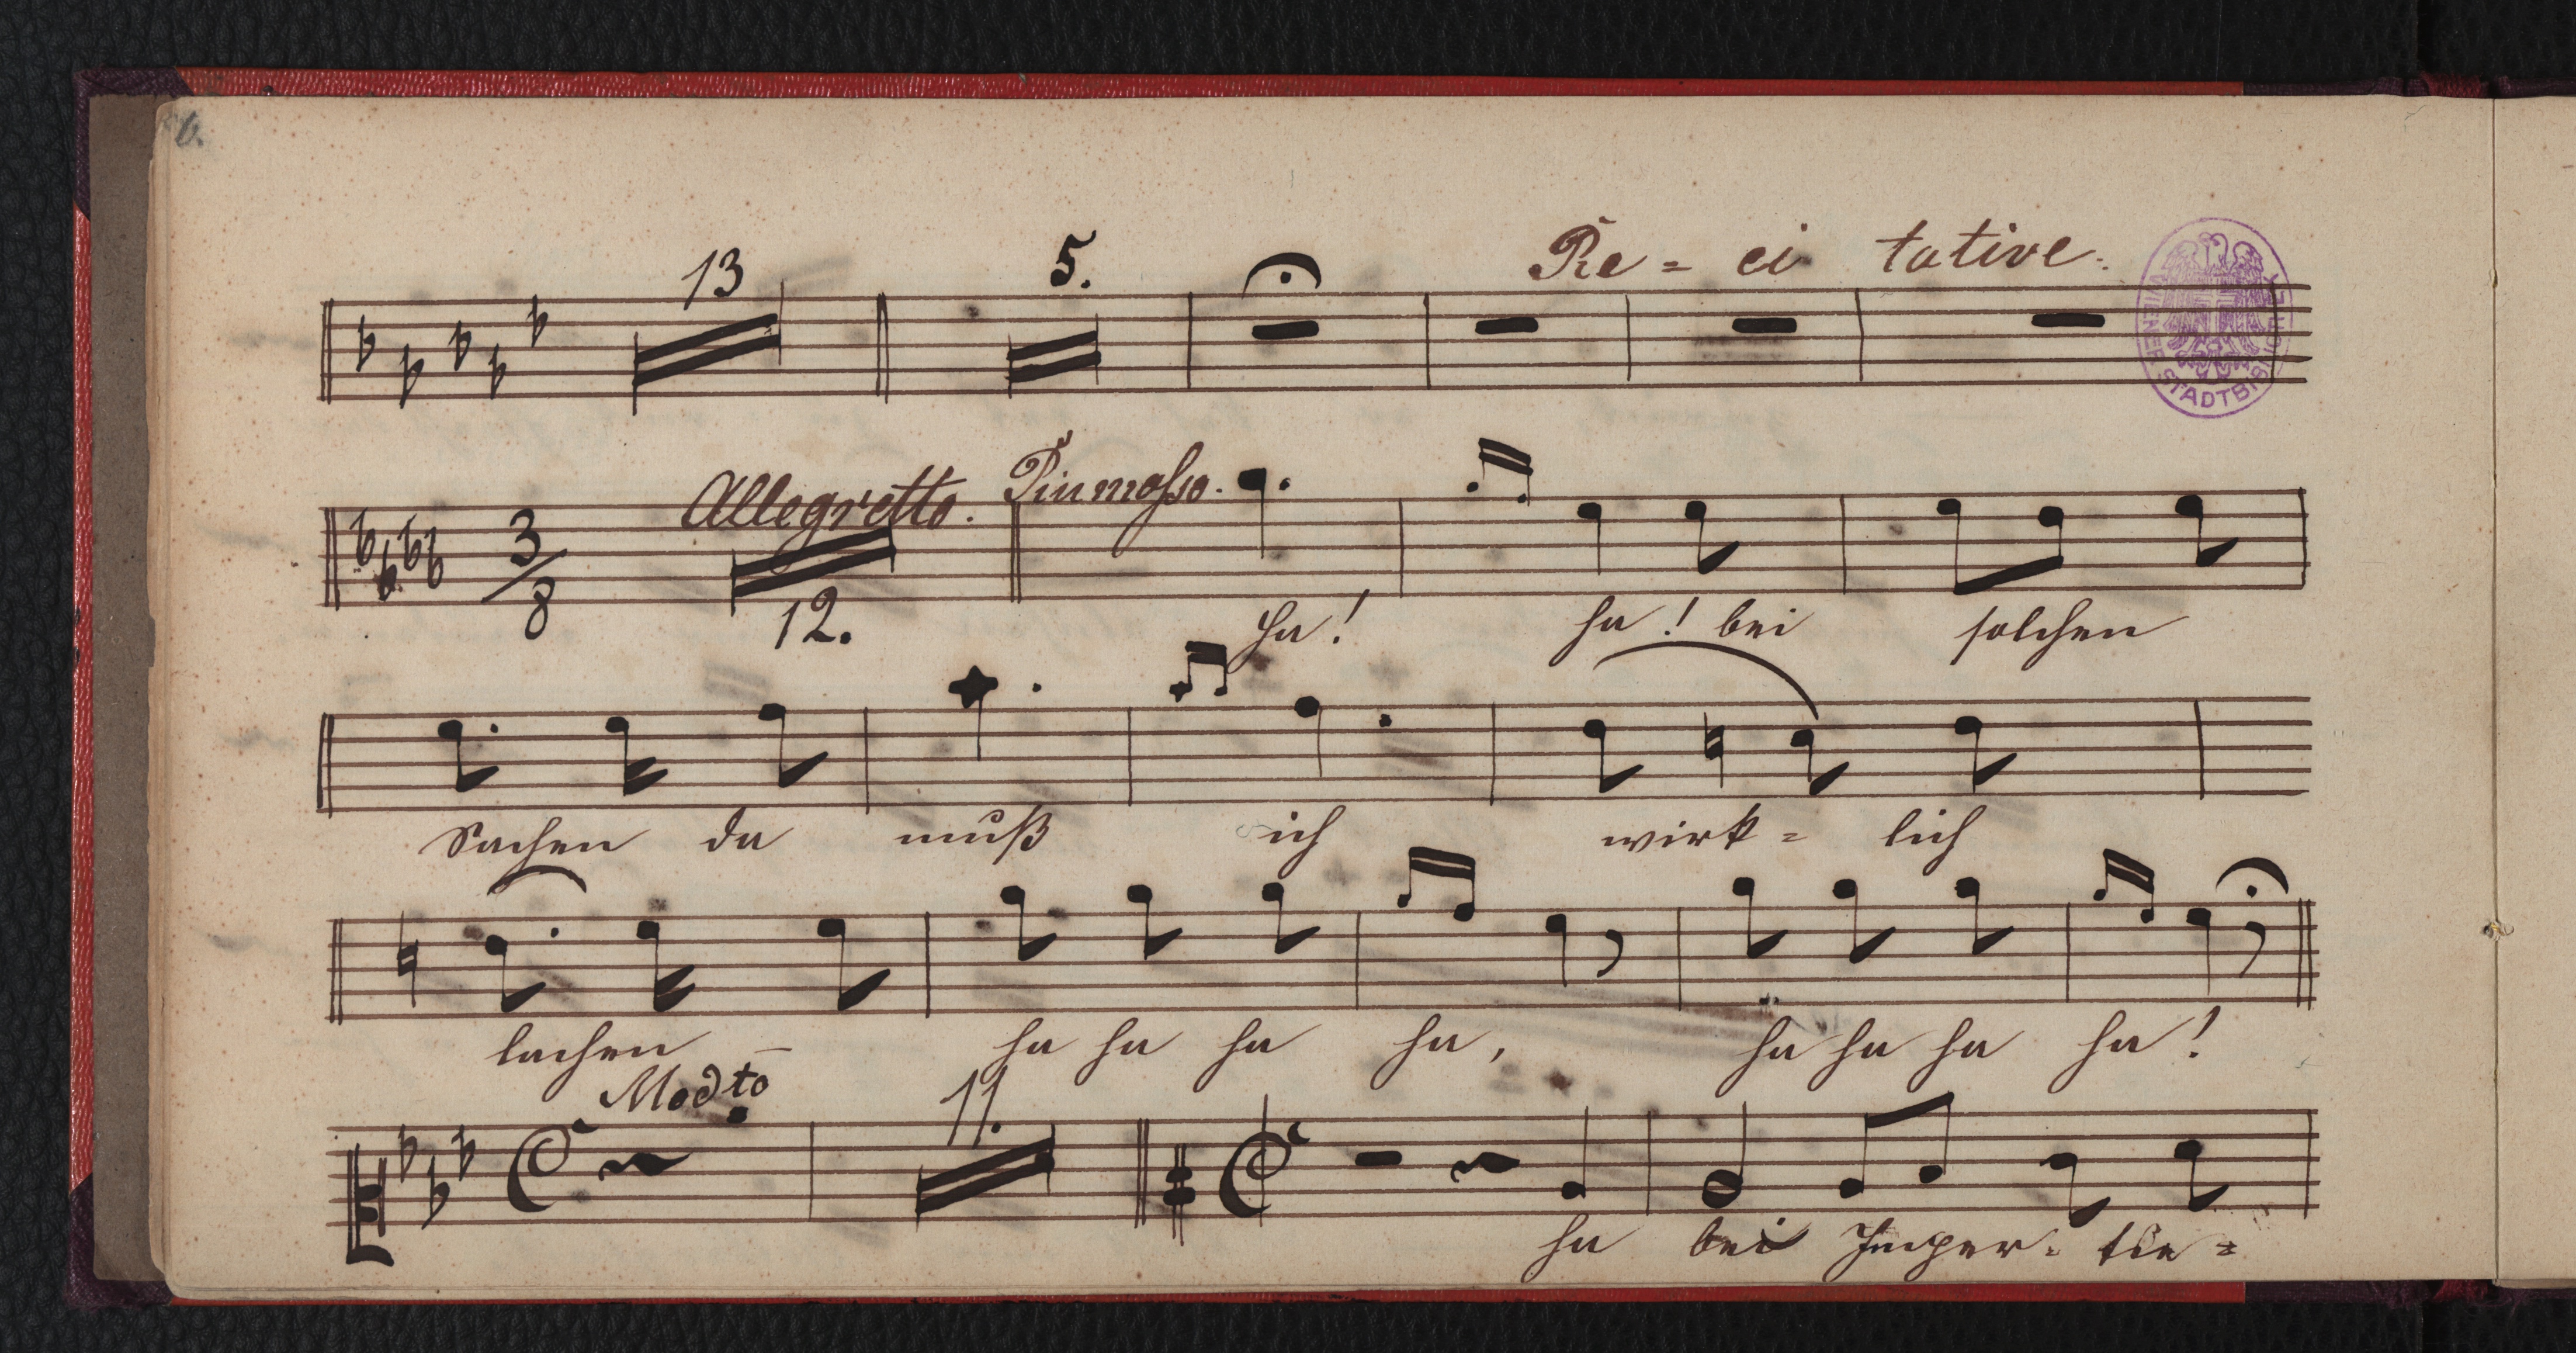 6.
13 5. Re = ci tative.
Allegretto. Piu mosso.
3/8 12. Ha! ha! bei solchen
Sachen da muß ich wirk = lich
lachen – ha ha ha ha, ha ha ha ha!
Modto 11.
ha bei Imper =
WIENER STADTBIBLIOTHEK